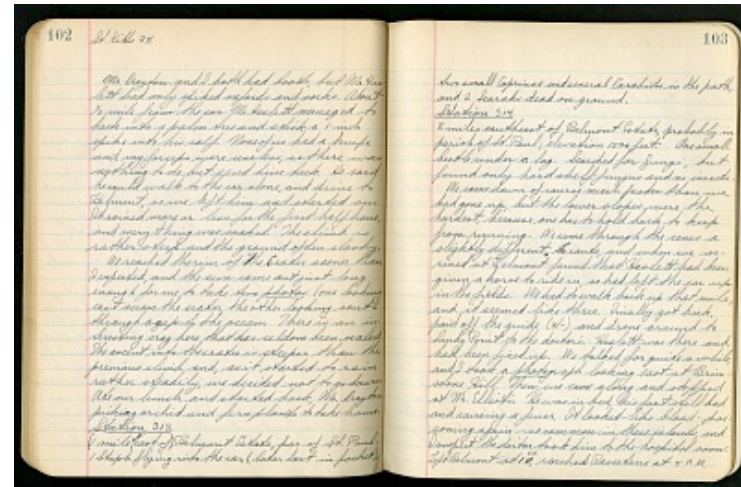 102
St. Kitts 24
Mr. Drayton and I both had boots, but Mr. Haz-
lett had only spiked oxfords and socks. About
½ mile from the car Mr. Hazlett managed to
back into a palm tree and stick a 2-inch
spike into his calf. None of us had a knife
and my forceps were useless, so there was
nothing to do but send him back. He said
he could walk to the car alone, and drive to
Belmont, so we left him and started on.
It rained more or less for the first half hour,
and everything was soaked. The climb is
rather steep and the ground often slippery.
We reached the rim of the Crater sooner than
I expected, and the sun came out just long
enough for me to take two photos (one looking
east across the crater, the other looking south
through a gap to the ocean. There is an in-
teresting crag here that has seldom been scaled.
The descent into the crater is steeper than the
previous climb, and, as it started to rain
rather steadily, we decided not to go down.
Ate our lunch and started back, Mr. Drayton
picking orchid and fern plants to take home.
Station 313
1 mile east of Belmont Estate, par. of St. Paul.
1 Staph. flying into the car (later lost in pocket)
103
two small Coprinae and several Carabids in the path
and 2 Scarabs dead on ground.
Station 314
2 miles southeast of Belmont Estate, probably in
parish of St. Paul; elevation 1500 feet. One small
beetle under a log. Searched for fungi, but
found only hard shelf fungus and no insects.
We came down of course much faster than we
had gone up, but the lower slopes were the
hardest, because one has to hold back to keep
from running. We came through the canes a
slightly different route, and when we ar-
rived at Belmont found that Hazlett had been
given a horse to ride in, so had left the car up
in the fields. We had to walk back up that mile,
and it seemed like three. Finally got back,
paid off the guide, and drove around to
Sandy Point to the doctor's. Hazlett was there and
had been fixed up. We talked for quite a while
and I took a photograph looking east at Brim-
stone Hill. Then we came along and stopped
at Mr. Elliott's. He was in bed, his foot still bad
and carrying a fever. It looked like blood poi-
soning again - so common in these islands, and
the doctor took him to the hospital soon.
Left Belmont at 1, reached Basseterre at 5 P.M.